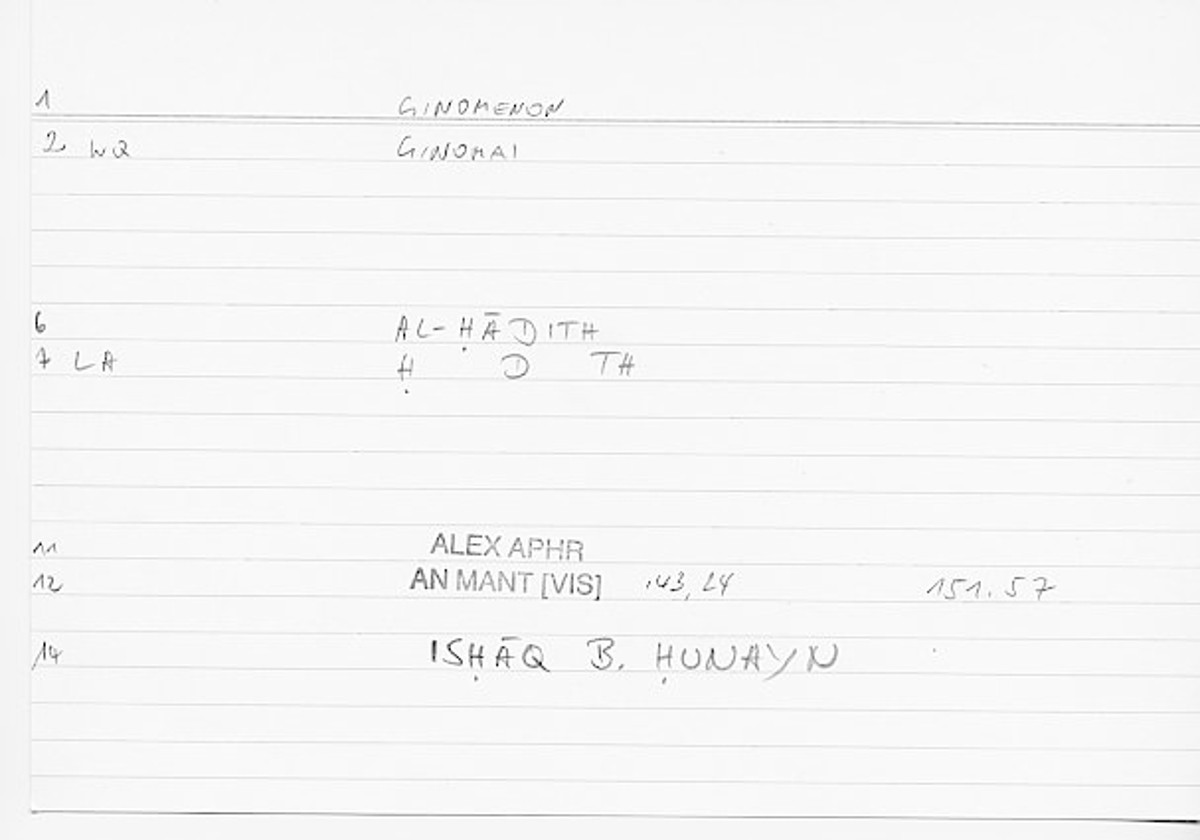 1 GINOMENON
2 WQ GINOMAI
6 AL-ḤĀDITH
7 LA Ḥ D TH
11 ALEX APHR
12 AN MANT [VIS] 143, 24 151.57
14 ISḤĀQ B. ḤUNAYN